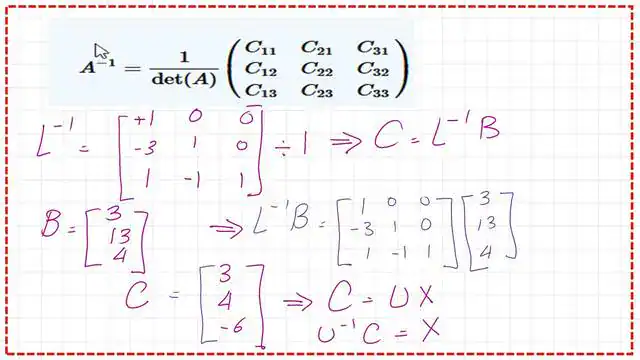 A⁻¹ = 1/det(A) ( C₁₁ C₂₁ C₃₁
C₁₂ C₂₂ C₃₂
C₁₃ C₂₃ C₃₃ )
L⁻¹ = [ +1 0 0
-3 1 0
1 -1 1 ] ÷ 1 ⇒ C = L⁻¹ B
B = [ 3
13
4 ] ⇒ L⁻¹B = [ 1 0 0
-3 1 0
1 -1 1 ] [ 3
13
4 ]
C = [ 3
4
-6 ] ⇒ C = U X
U⁻¹ C = X